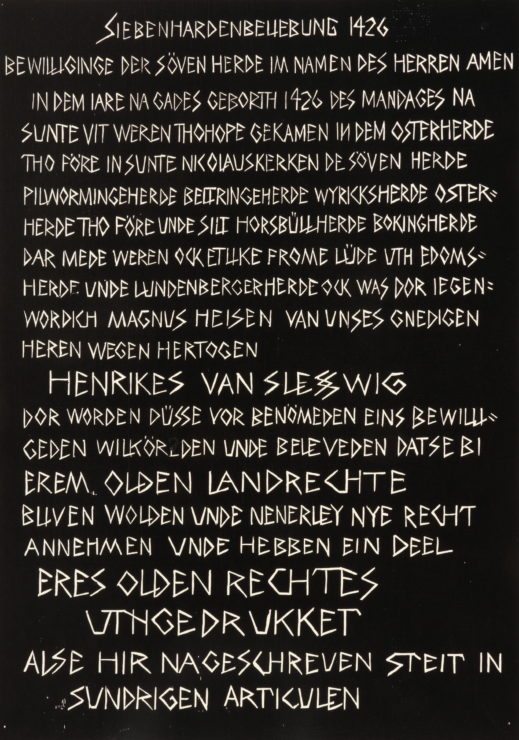 SIEBENHARDENBELIEBUNG 1426
BEWILLIGINGE DER SÖVEN HERDE IM NAMEN DES HERREN AMEN
IN DEM IARE NA GADES GEBORTH 1426 DES MANDAGES NA
SUNTE VIT WEREN THOHOPE GEKAMEN IN DEM OSTERHERDE
THO FÖRE IN SUNTE NICOLAUSKERKEN DE SÖVEN HERDE
PILWORMINGEHERDE BELTRINGEHERDE WYRICKSHERDE OSTER=
HERDE THO FÖRE UNDE SILT HORSBÜLLHERDE BOKINGHERDE
DAR MEDE WEREN OCK ETLIKE FROME LÜDE UTH EDOMS=
HERDE UNDE LUNDENBERGERHERDE OCK WAS DOR IEGEN=
WORDICH MAGNUS HEISEN VAN UNSES GNEDIGEN
HEREN WEGEN HERTOGEN
HENRIKES VAN SLESSWIG
DOR WORDEN DÜSSE VOR BENÖMEDEN EINS BEWILLI=
GEDEN WILKÖREDEN UNDE BELEVEDEN DAT SE BI
EREM OLDEN LANDRECHTE
BLIVEN WOLDEN UNDE NENERLEY NYE RECHT
ANNEHMEN UNDE HEBBEN EIN DEEL
ERES OLDEN RECHTES
UTHGEDRUKKET
ALSE HIR NAGESCHREVEN STEIT IN
SUNDRIGEN ARTICULEN